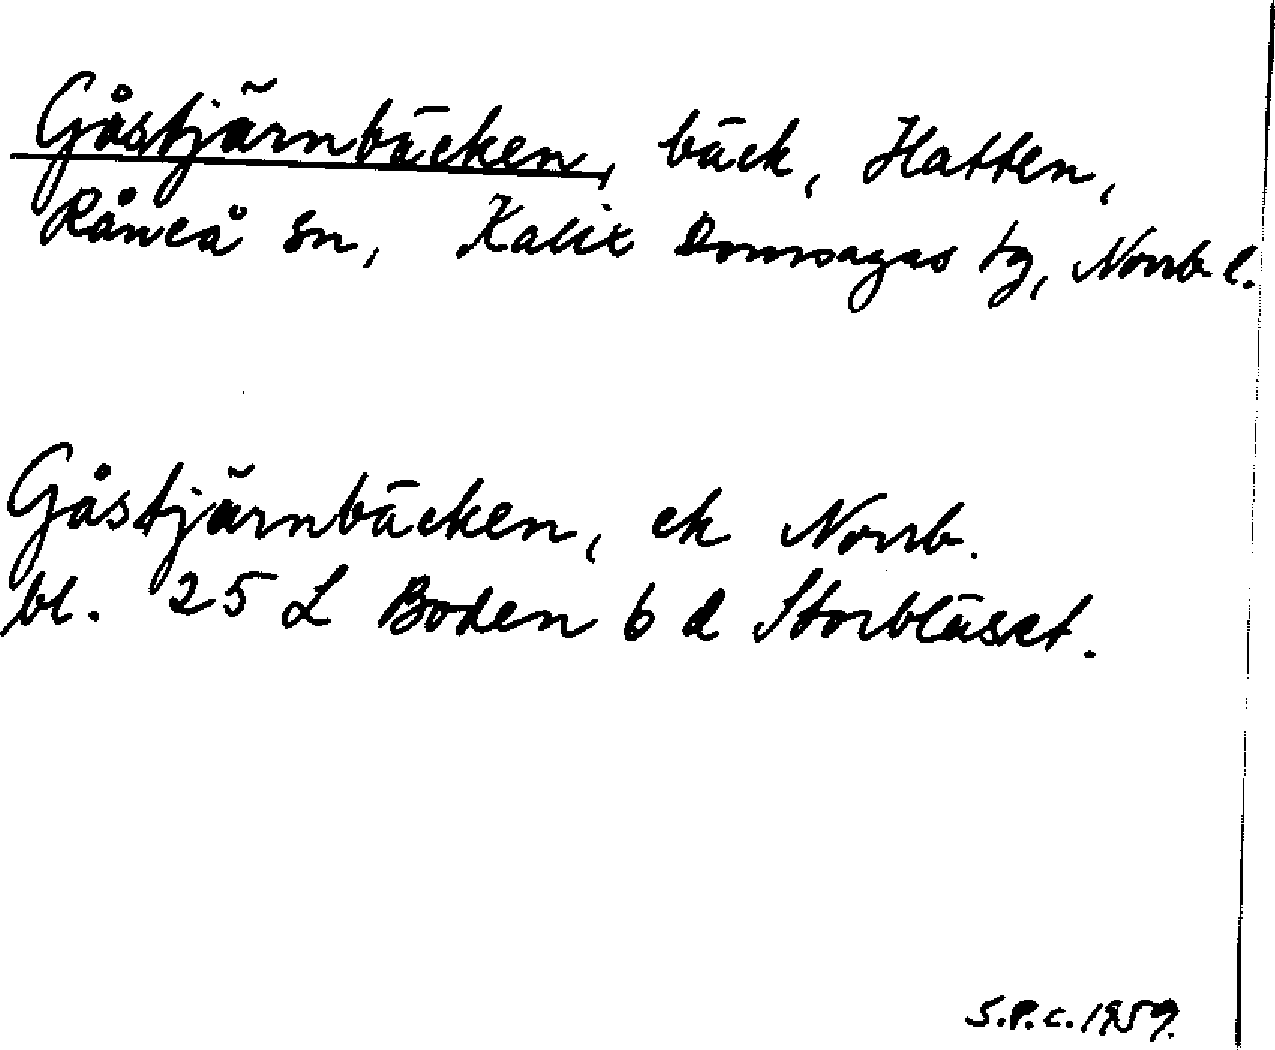 Gåstjärnbäcken, bäck, Hatten,
Råneå sn, Kalix Domsagas tg, Norrb. l.
Gåstjärnbäcken, ek Norrb.
bl. 25 L Boden 6 d Storblåset.
S.P.c. 1959.